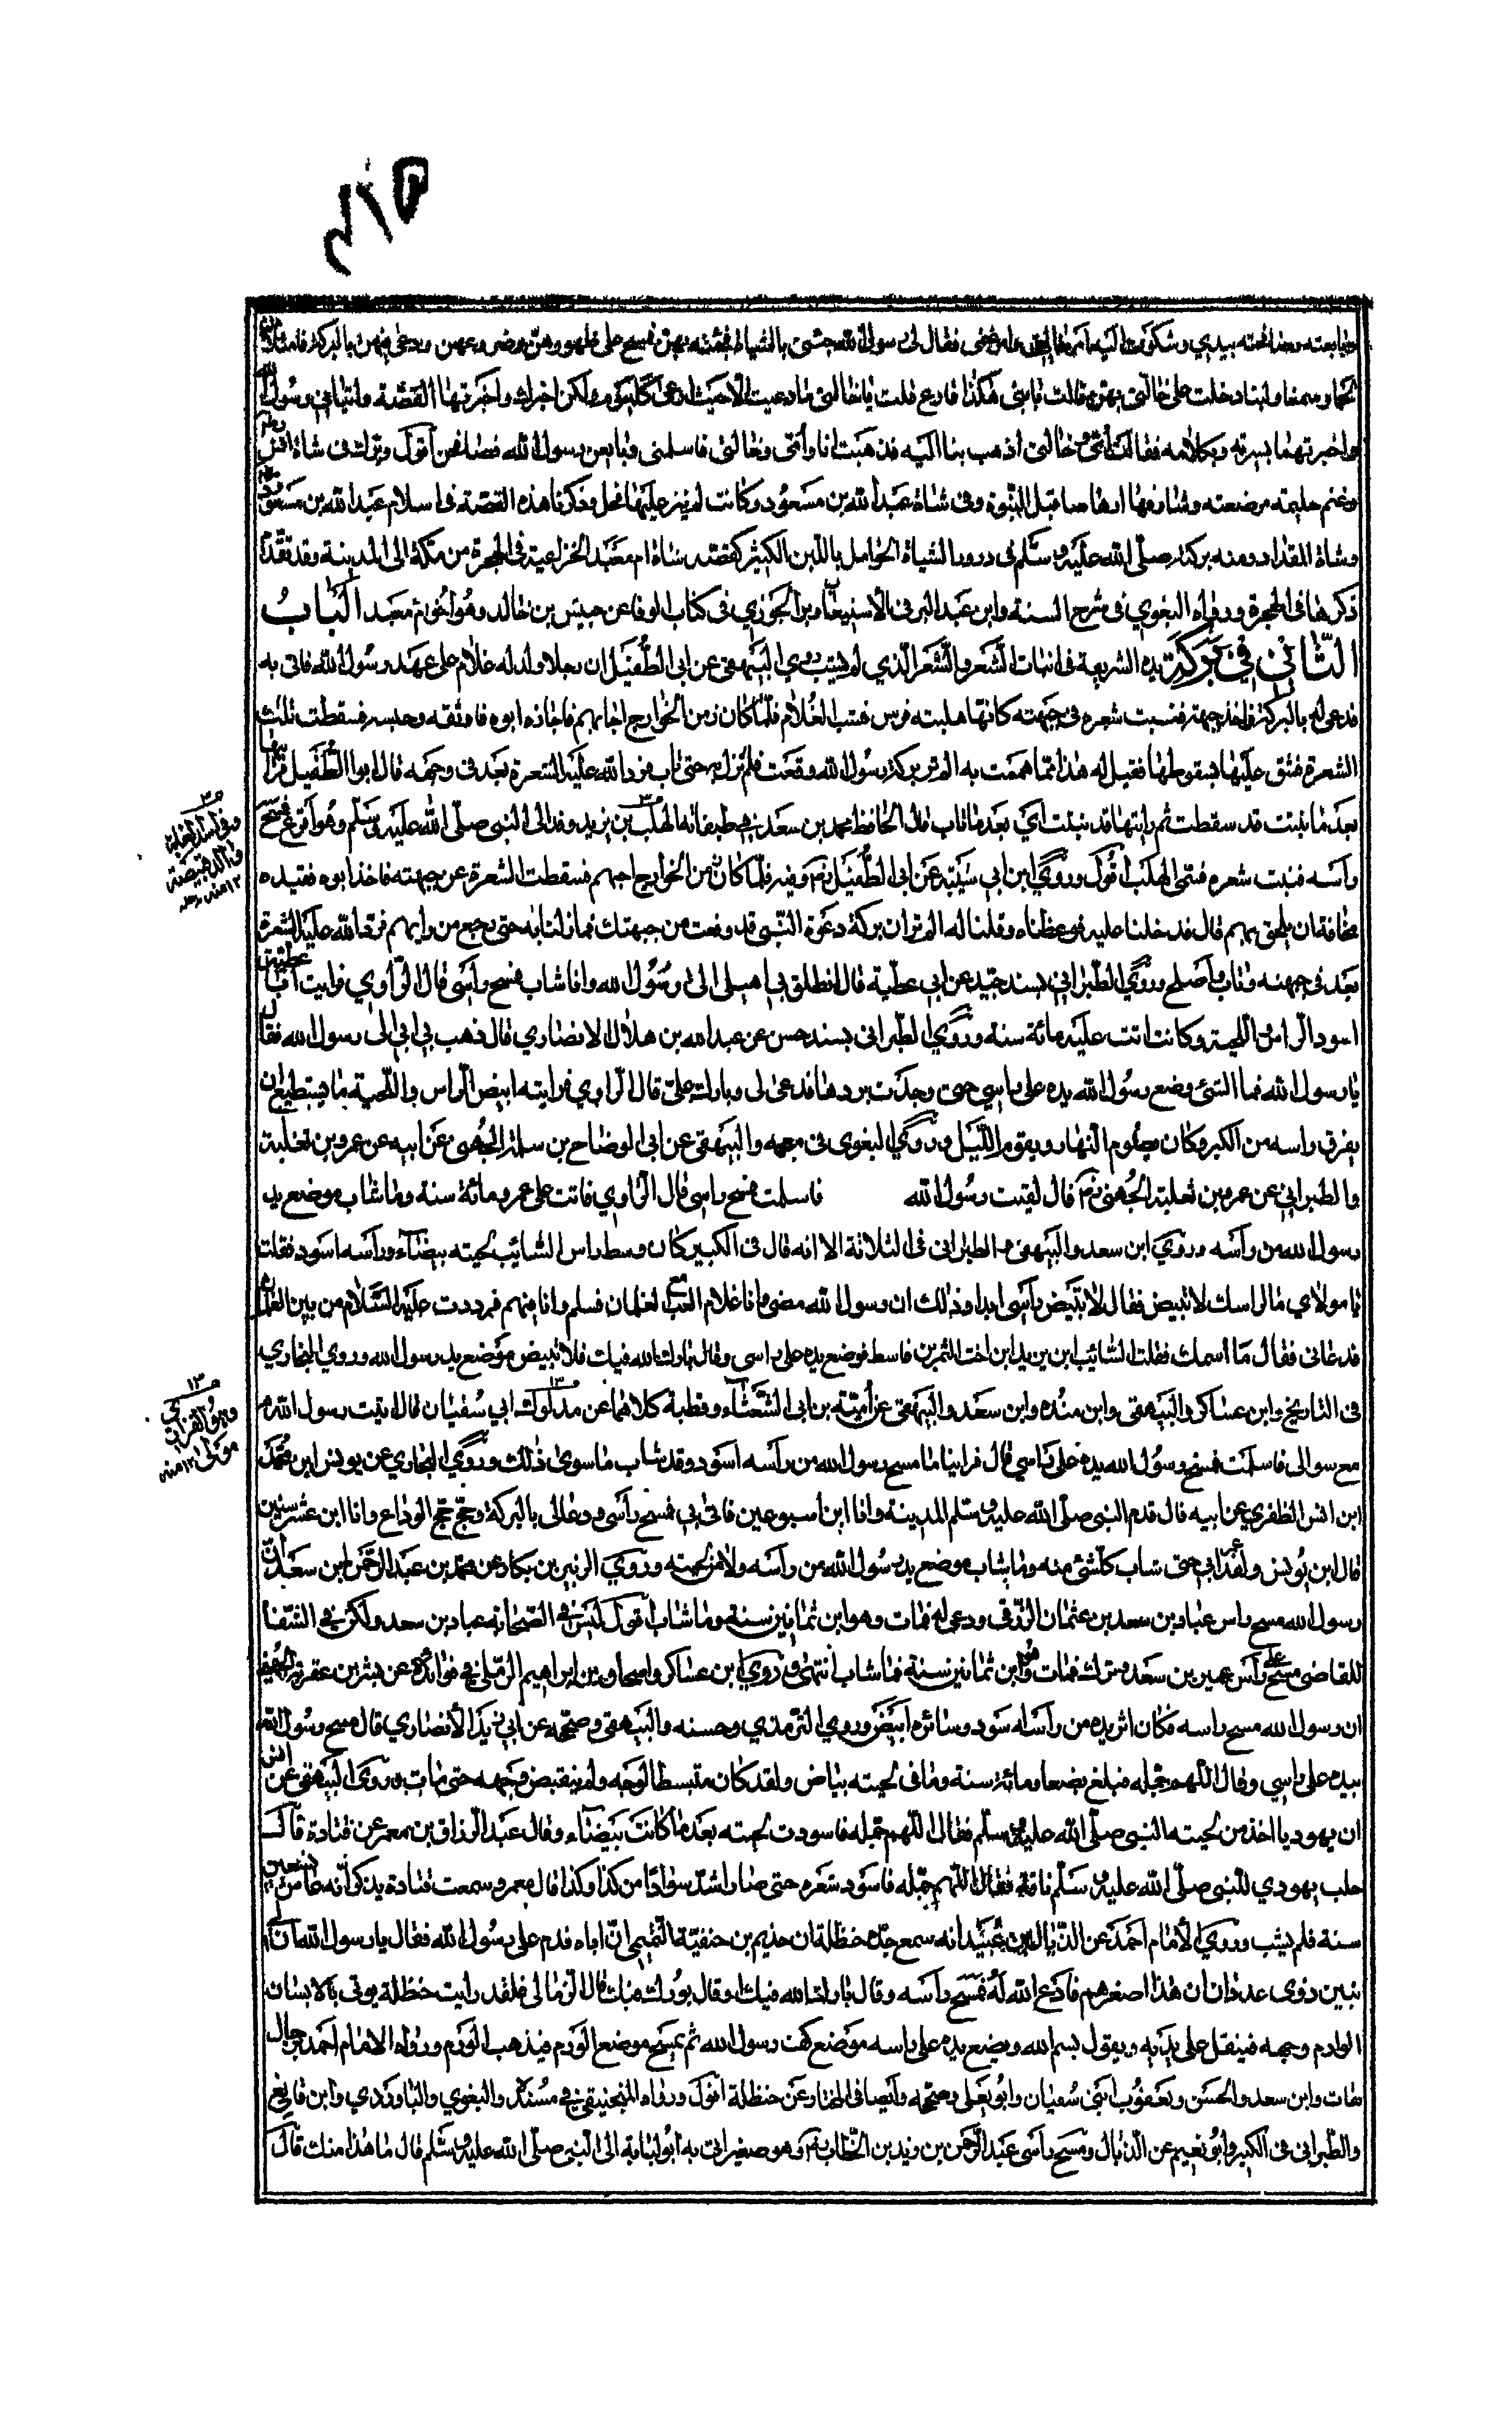 وبايعته وصافحته بيدي وشكوت اليه امر خالتي وامر غنمي فقال لي رسول الله جئني بالشياه فجئته بهن فمسح على ظهورهن وضروعهن ودعى فيهن بالبركة فامتلأت
شحما ولبنا ولبنا دخلت على خالتي بهن قالت يا بني هكذا فارع قلت يا خالتي ما رعيت الا حيث ارعى كل يوم ولكن اخبرك واخبرتها القصة واتياني رسول الله
واخبرتهما بسيرته وبكلامه فقالت امي وخالتي اذهب بنا اليه فذهبت انا وامي وخالتي فاسلمن وبايعن رسول الله فصافحن اقول وبركته في شاة انس
وغنم حليمة مرضعته وشارفها ارهاصا قبل النبوة وفي شاة عبد الله بن مسعود وكانت لم ينز عليها فحل وذكرنا هذه القصة في اسلام عبد الله بن مسعود
وشاة المقداد ومنه بركته صلى الله عليه وسلم في درور الشياه الحوامل باللبن الكثير كقصة شاة ام معبد الخزاعية في الهجرة من مكة الى المدينة وقد تقدم
ذكرها في الهجرة ورواه البغوي في شرح السنة وابن عبد البر في الاستيعاب وابن الجوزي في كتاب الوفا عن حبيش بن خالد وهو اخو ام معبد الباب
الثاني في بركة يده الشريفة في انبات الشعر والشعر الذي لم يشب روي البيهقي عن ابي الطفيل ان رجلا ولد له غلام على عهد رسول الله فاتى به
فدعى له بالبركة واخذ جبهته فنبتت شعره في جبهته كانها هلبة فرس فشب الغلام فلما كان زمن الخوارج اجابهم فاخذه ابوه فاوثقه وحبسه فسقطت تلك
الشعرة فشق عليها سقوطها فقيل له هذا مما هممت به الم تر بركة رسول الله وقعت فلم نزل به حتى تاب فرد الله عليه الشعرة بعد في وجهه قال ابو الطفيل فرأيتها
بعد ما نبتت قد سقطت ثم رايتها قد نبتت اي بعد ما تاب قال الحافظ محمد بن سعد في طبقاته الهلب بن يزيد وفد الى النبي صلى الله عليه وسلم وهو اقرع فمسح
رأسه فنبت شعره فسمي الهلب اقول وروي ابن ابي شيبة عن ابي الطفيل نحوه وفيه فلما كان زمن الخوارج احبهم فسقطت الشعرة عن جبهته فاخذ ابوه فقيده
مخافة ان يلحق بهم قال فدخلنا عليه فوعظناه وقلنا له الم تر ان بركة دعوة النبي قد وقعت من جبهتك فما زلنا به حتى رجع من رايهم فرد الله عليه الشعرة
بعد في جبهته وتاب واصلح وروي الطبراني بسند جيد عن ابي عطية قال انطلق بي اهلي الى رسول الله وانا شاب فمسح رأسي قال الراوي فرايت ابا عطية
اسود الراس واللحية وكانت اتت عليه مائة سنة وروي الطبراني بسند حسن عن عبد الله بن هلال الانصاري قال ذهب بي ابي الى رسول الله فقال
يا رسول الله فما انسى وضع رسول الله يده على راسي حتى وجدت بردها فدعى لي وبارك علي قال الراوي فرايته ابيض الراس واللحية ما يستطيع ان
يفرق راسه من الكبر وكان يصوم النهار ويقوم الليل وروي البغوي في معجمه والبيهقي عن ابي الوضاح بن سلمة الجهني عن ابيه عن عمرو بن ثعلبة
والطبراني عن عمرو بن ثعلبة الجهني قال لقيت رسول الله فاسلمت فمسح راسي قال الراوي فاتت على عمرو مائة سنة وما شاب موضع يد
رسول الله من رأسه وروي ابن سعد والبيهقي والطبراني في الثلاثة الا انه قال في الكبير كان وسط راس السائب لحيته بيضاء ورأسه اسود فقلت
يا مولاي ما لراسك لا تبيض فقال لا تبيض رأسي ابدا وذلك ان رسول الله مضى وانا غلام العب مع الغلمان فسلم وانا فيهم فرددت عليه السلام من بين الغلمان
فدعاني فقال ما اسمك فقلت السائب ابن يزيد ابن اخت النمر بن قاسط فوضع يده على راسي وقال بارك الله فيك فلا تبيض موضع يد رسول الله وروي البخاري
في التاريخ وابن عساكر والبيهقي وابن منده وابن سعد والبيهقي عن آمنة بن ابي الشعثاء وقطبة كلاهما عن مدلوك ابي سفيان قال اتيت رسول الله
مع موالي فاسلمت فمسح رسول الله يده على راسي قال فراينا ما مسح رسول الله من رأسه اسود وقد شاب ما سوى ذلك وروي البخاري عن يونس ابن محمد
ابن انس الظفري عن ابيه قال قدم النبي صلى الله عليه وسلم المدينة وانا ابن اسبوعين فاتى بي فمسح رأسي ودعا لي بالبركة وحج حجة الوداع وانا ابن عشر سنين
قال ابن يونس ولقد عمر ابي حتى شاب كل شئ منه وما شاب موضع يد رسول الله من رأسه ولا من لحيته وروي الزبير بن بكار عن محمد بن عبد الرحمن بن سعد ان
رسول الله مسح راس عباد بن سعد بن عثمان الزرقي ودعى له فمات وهو ابن ثمانين سنة وما شاب اقول ليس في الصحابة عباد بن سعد ولكن في الشفا
للقاضي مسح على رأس عمير بن سعد وبرك فمات وهو ابن ثمانين سنة فما شاب انتهى وروي ابن عساكر واسحاق بن ابراهيم الرملي في فوائده عن بشر بن عقربة الجهني
ان رسول الله مسح راسه فكان اثر يده من رأسه اسود وسائره ابيض وروي الترمذي وحسنه والبيهقي وصححه عن ابي زيد الانصاري قال مسح رسول الله
بيده على راسي وقال اللهم جمله فبلغ بضعا ومائة سنة وما في لحيته بياض ولقد كان منبسط الوجه ولم ينقبض وجهه حتى مات وروى البيهقي عن انس
ان يهوديا اخذ من لحية النبي صلى الله عليه وسلم فقال اللهم جمله فاسودت لحيته بعد ما كانت بيضاء وقال عبد الرزاق بن معمر عن قتادة قال
حلب يهودي للنبي صلى الله عليه وسلم ناقة فقال اللهم جمله فاسود شعره حتى صار اشد سوادا من كذا وكذا قال معمر وسمعت قتادة يذكر انه عاش تسعين
سنة فلم يشب وروي الامام احمد عن الذيال بن عبيد انه سمع جده حنظلة ان حذيم بن حنفية التميمي ان اباه قدم على رسول الله فقال يا رسول الله ان لي
بنين ذوي عدد وان هذا اصغرهم فادع الله له فمسح رأسه وقال بارك الله فيك وقال بورك فيك قال الذيال فلقد رايت حنظلة يوتى بالانسان
الوارم وجهه فينفل على يديه ويقول بسم الله ويضع يده على راسه موضع كف رسول الله ثم يمسح موضع الورم فيذهب الورم ورواه الامام احمد برجال
ثقات وابن سعد والحسن ويعقوب ابني سفيان وابو يعلى وصححه وايضا في المختار عن حنظلة اقول ورواه المنجنيقي في مسنده والبغوي والباوردي وابن قانع
والطبراني في الكبير وابو نعيم عن الذيال ومسح رأس عبد الرحمن بن زيد بن الخطاب وهو صغير اتى به ابو لبابة الى النبي صلى الله عليه وسلم قال ما هذا منك قال